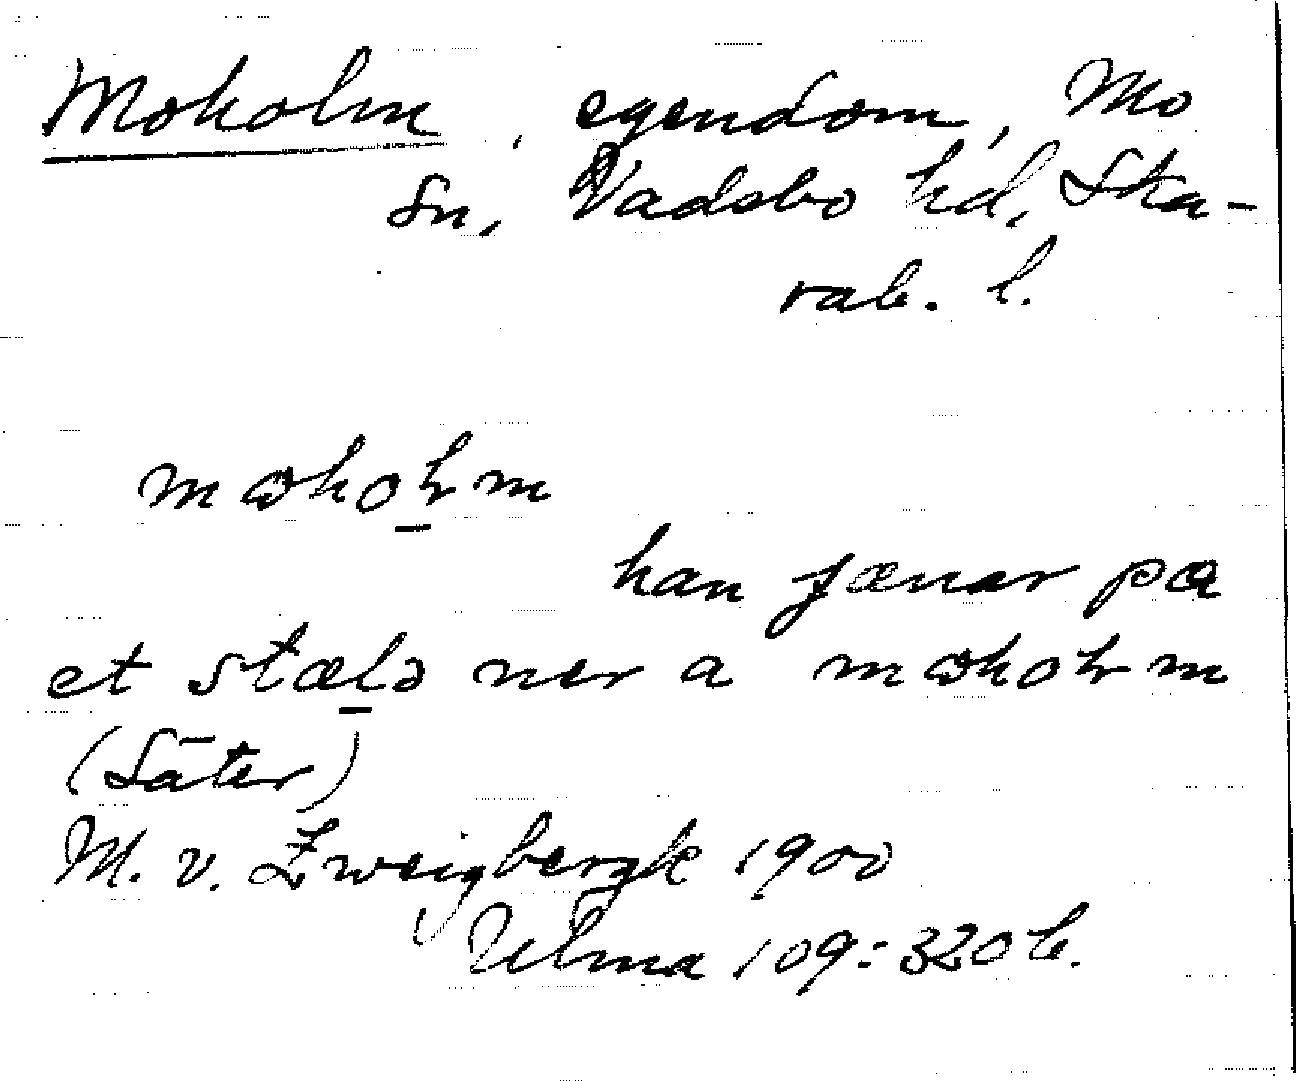 Moholm, egendom, Mo
sn, Vadsbo hd, Ska-
rab. l.
mωhoⱡm
han jænar pa
et stælə ner a mωhoⱡm
(Säter)
M. v. Zweigbergk 1900
Ulma 109:320 b.